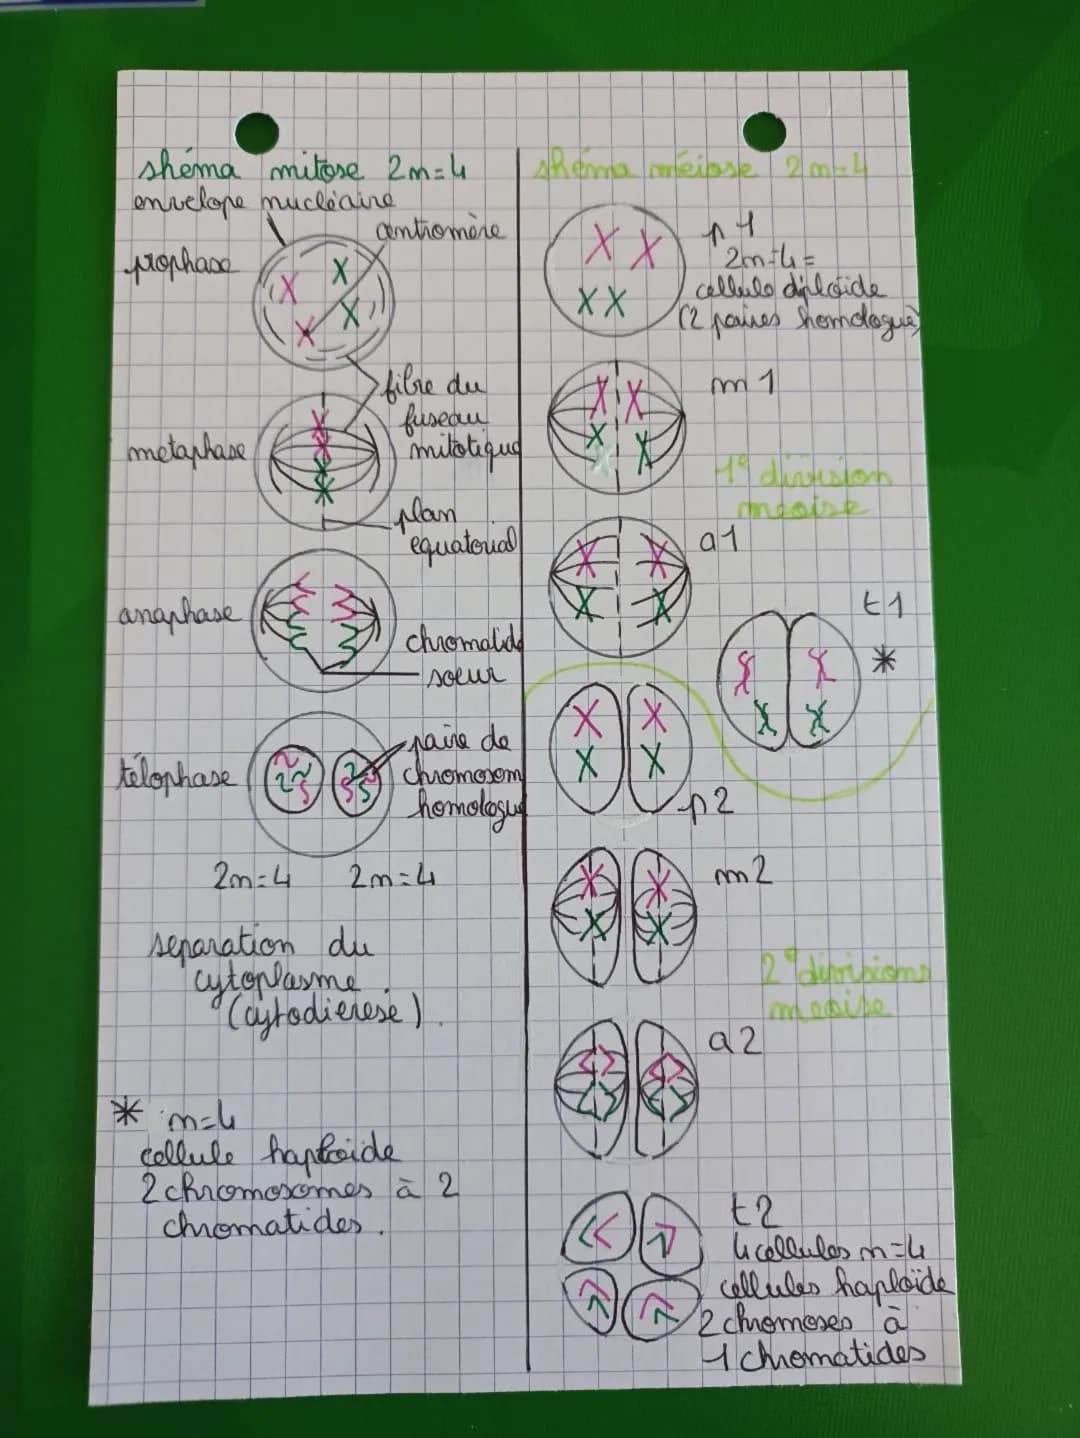 shéma mitose 2m=4
envelope nucléaire
centromère
prophase
fibre du
fuseau
mitotique
metaphase
plan
equatorial
anaphase
chromatide
soeur
télophase
paire de
chromosom
homologue
2m=4 2m=4
separation du
cytoplasme.
(cytodierese).
* m=4
cellule haploide
2 chromosomes à 2
chromatides.
shéma méiose 2m=4
p1
2m=4=
cellule diploide
(2 paires homologue)
m1
1° division
meoise
a1
t1
*
p2
m2
2° divisions
meoise
a2
t2
4 cellules m=4
cellules haploïde
2 chromoses à
1 chromatides